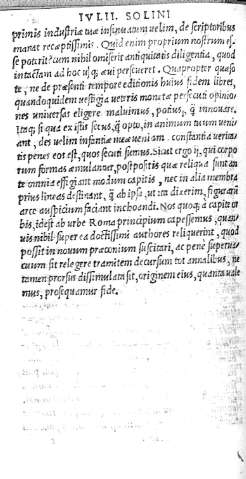 IVLII. SOLINI
primis industriā tuā insinuatum velim, de scriptoribus
manat receptissimis. Quid enim proprium nostrum es-
se potrit? cum nibil omiserit antiquitatis diligentia, quod
intactam ad hoc usq; æui perseueret. Quapropter quaso
te, ne de præsenti tempore editionis huius fidem libret,
quandoquidem vestigia veteris monetæ persecuti opinio-
nes vniuersas eligere maluimus, potius, q̃ innouare.
Itaq; si qua ex istis secus, q̃ opto, in animum tuum veni
ant, des velim infantiæ meæ veniam. constantia verita-
tis penes eos est, quos secuti sumus. Sicut ergo ij, qui corpo
rum formas æmulantur, postpositis quæ reliqua sunt an
te omnia effigiant modum capitis, nec in alia membra
prius lineas destinant, q̃ ab ipsa, ut ita dixerim, figurarū
arce auspicium faciant inchoandi. Nos quoq; à capite or
bis, id est ab urbe Roma principium capessemus, quan-
uis nibil super ea doctissimi authores reliquerint, quod
possit in nouum præconium suscitari, ac penè superua-
cuum sit relegere tramitem decursum tot annalibus, ne
tamen prorsus dissimulata sit, originem eius, quanta vale
mus, prosequamur fide.